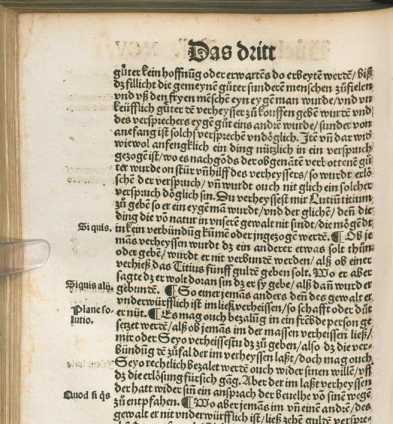 Das dritt
güter kein hoffnūg oder erwartēs do erbeytē werdē/ biß
dz fillicht die gemeynē güter sunderē menschen zůfielen
vnd vß den fryen mēschē eyn eygē man wurde/ vnd vn
keüfflich güter tē verheysser zů kouffen gebē wurtē vnd
des versprechers eygē güt eins andrē wurde/ sunder von
anefang ist solchs versprechē vndöglich. Itē vñ dar wid
wiewol anfengklich ein ding nützlich in ein verspruch
gezogē ist/ wo es nachgōds der obgenātē verbottenē gü
ter wurde on stür vñ hilff des verheyssers/ so wurdt erlö
schē der verspruch/ vñ wurdt ouch nit glich ein solcher
verspruch döglich sin. Du verheyssest mir Lutiū titium
zů gebē so er ein eygē mā wurdt/ vnd der glichē/ deñ die
ding die vō natur in vnserē gewalt nit sind/ die mögē dē
Si quis.
in kein verbündūg kūmē oder ingezogē werdē. ¶ Ob je
mās verheyssen wurdt dz ein anderer etwas solt thün
oder gebē/ wurdt er nit verbundē werden/ alß ob einer
verhieß das Titius fünff guldē geben solt. Wo er aber
sagte dz er wolt doran sin dz er sy gebe/ alß dañ wurd er
Si quis alij.
gebundē. ¶ So einer jemās anders deñ des gewalt er
vnderwürfflich ist im ließ verheissen/ so schafft oder důt
Plane so-
lutio.
er nüt. ¶ Es mag ouch bezalūg in ein frēbde person ge
setzet werdē/ alß ob jemās im der massen verheissen ließ/
mir oder Seyo verheissestu dz zů geben/ also dz die ver
bündūg tē zůfal der im verheyssen laßt/ doch mag ouch
Seyo rechtlich bezalet werdē ouch wider sinen willē/ vff
dz die erlösung für sich gāg. Aber der im laßt verheyssen
der hatt wider sin ein ansprach der beuelhe vō sinē wegē
Quod si q̄s
zů entpfahen. ¶ Wo aber jemās im vñ einē andrē/ des
gewalt er nit vnderwürfflich ist/ ließ zehē guldē verspre-